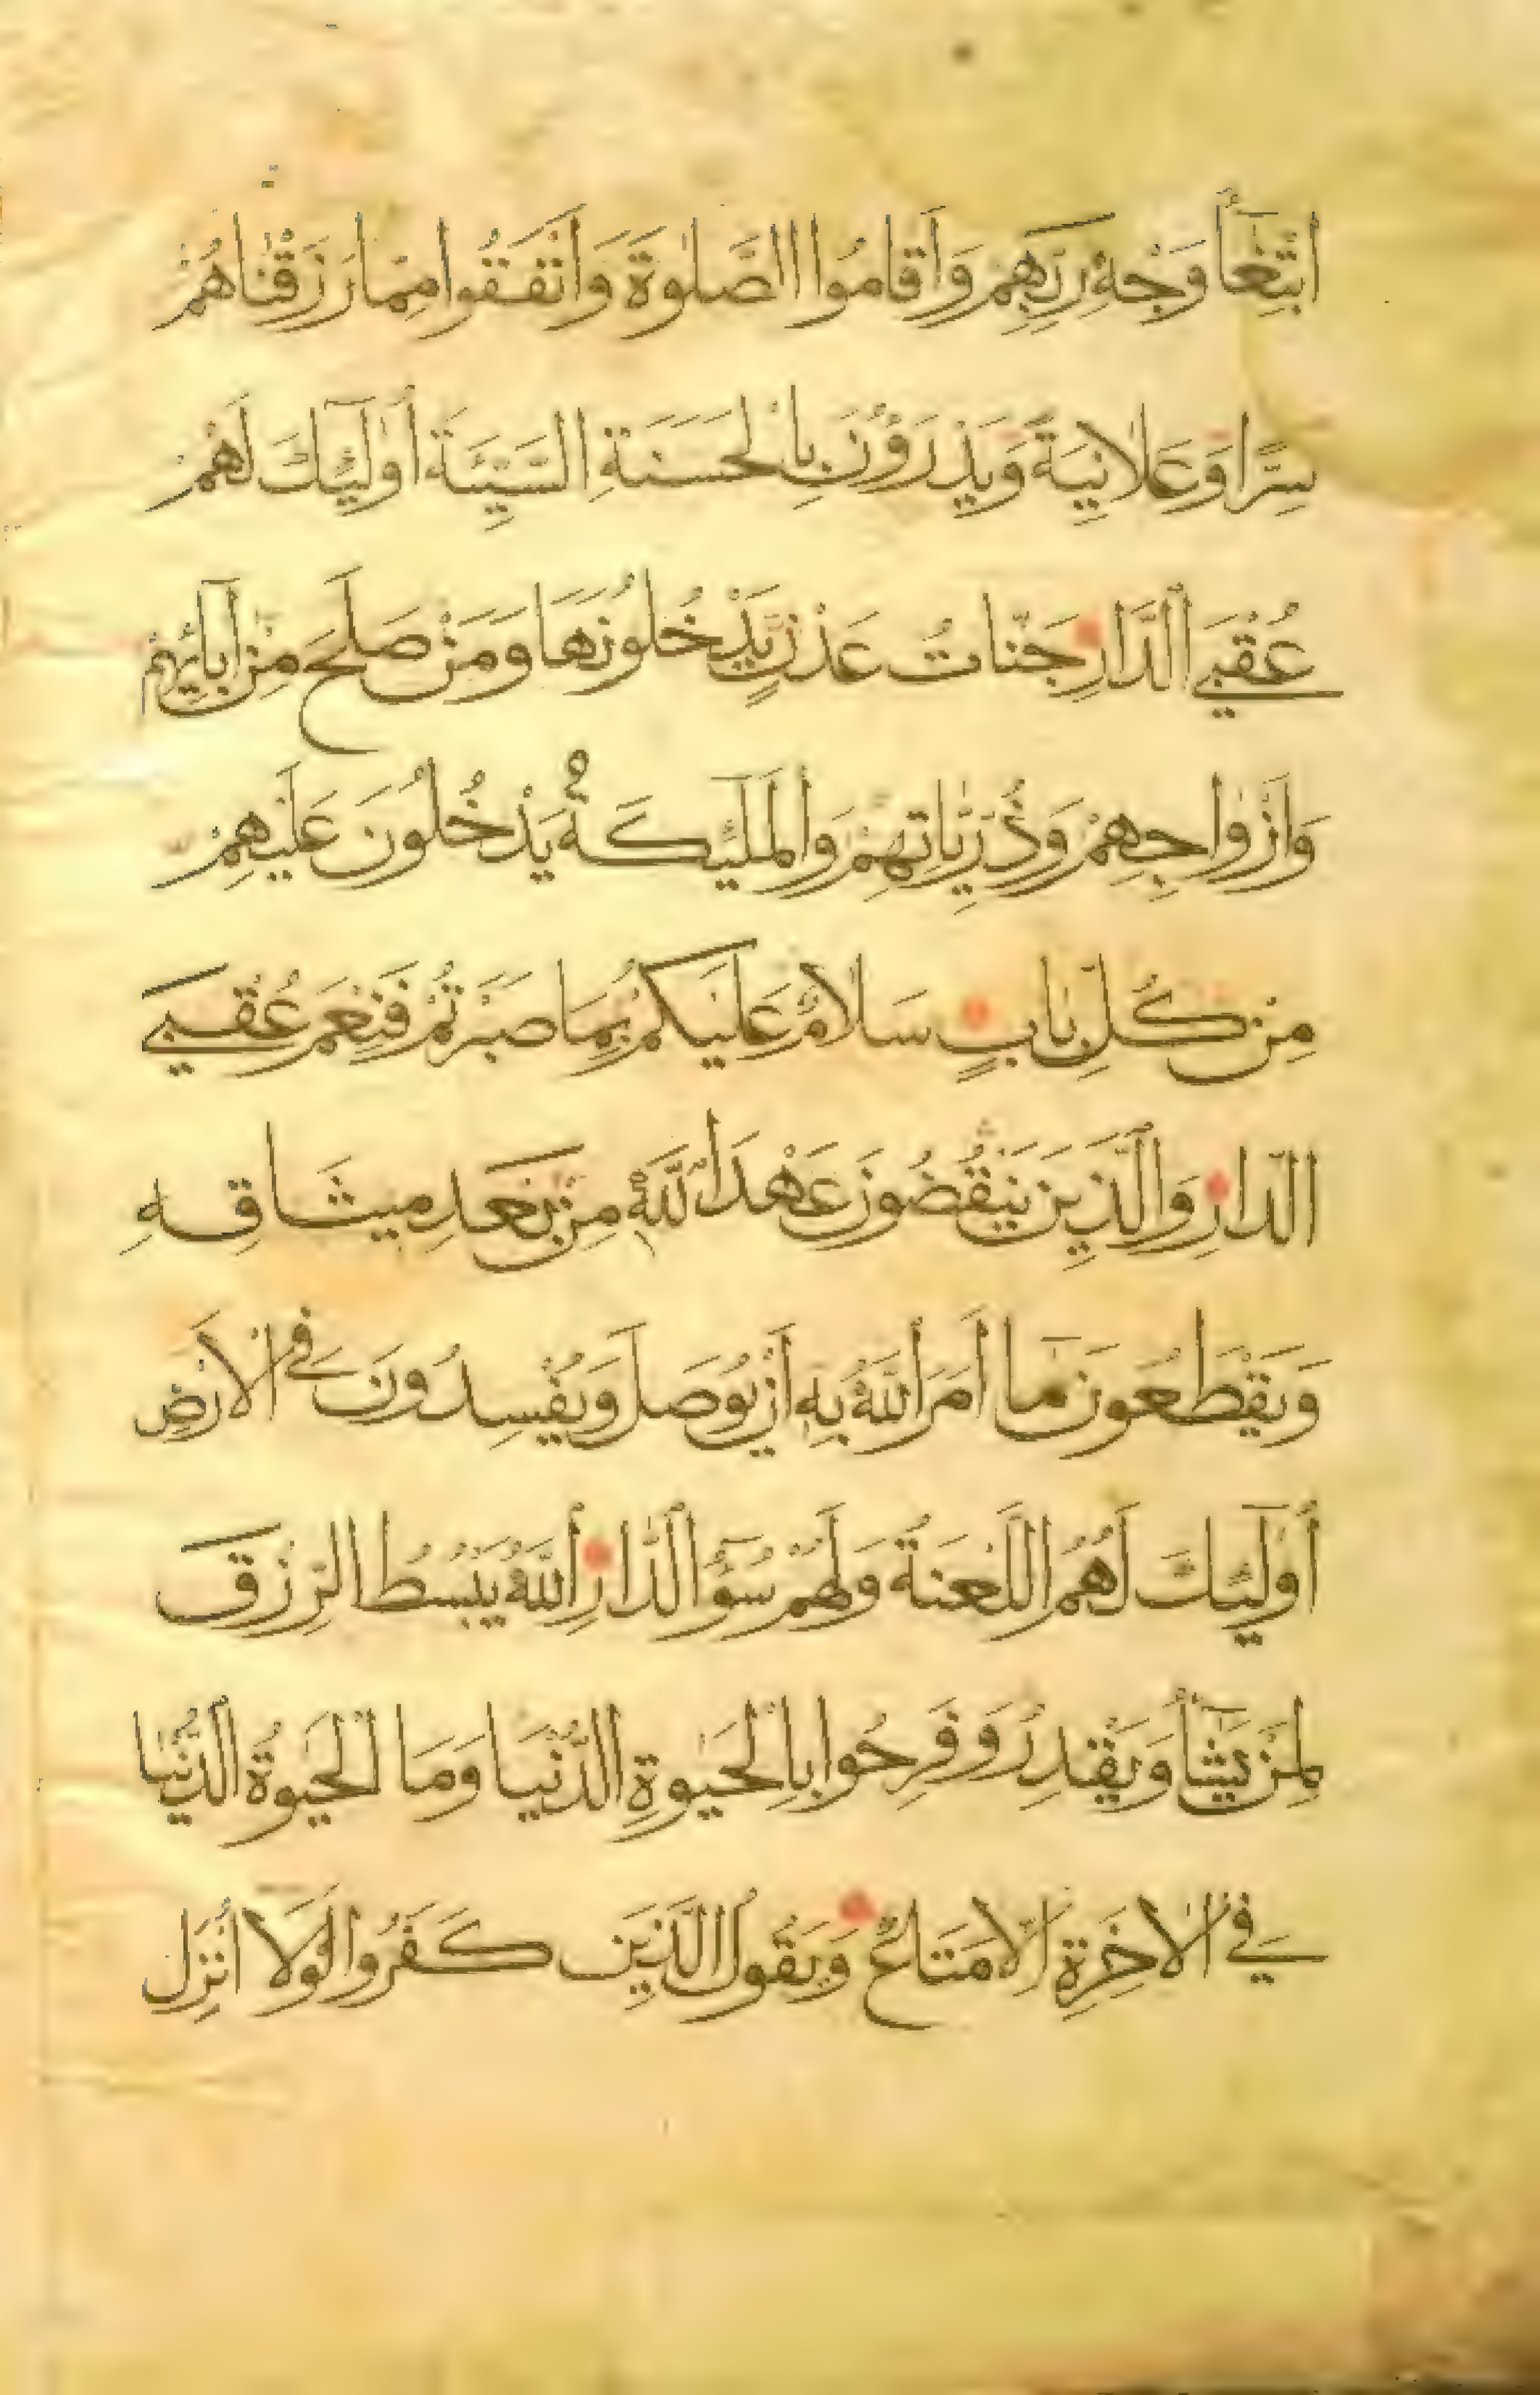 ابْتِغَآءَ وَجْهِ رَبِّهِمْ وَأَقَامُوا الصَّلَوٰةَ وَأَنْفَقُوا مِمَّا رَزَقْنَاهُمْ
سِرًّا وَعَلَانِيَةً وَيَدْرَؤُنَ بِالْحَسَنَةِ السَّيِّئَةَ أُولَٰئِكَ لَهُمْ
عُقْبَي الدَّارِ جَنَّاتُ عَدْنٍ يَّدْخُلُونَهَا وَمَنْ صَلَحَ مِنْ اٰبَآئِهِمْ
وَأَزْوَاجِهِمْ وَذُرِّيَّاتِهِمْ وَالْمَلَٰئِكَةُ يَدْخُلُونَ عَلَيْهِمْ
مِنْ كُلِّ بَابٍ سَلَامٌ عَلَيْكُمْ بِمَا صَبَرْتُمْ فَنِعْمَ عُقْبَي
الدَّارِ وَالَّذِينَ يَنْقُضُونَ عَهْدَ اللَّهِ مِنْ بَعْدِ مِيثَاقِهِ
وَيَقْطَعُونَ مَا أَمَرَ اللَّهُ بِهِ أَنْ يُوصَلَ وَيُفْسِدُونَ فِي الْأَرْضِ
أُولَٰئِكَ لَهُمُ اللَّعْنَةُ وَلَهُمْ سُوءُ الدَّارِ اللَّهُ يَبْسُطُ الرِّزْقَ
لِمَنْ يَشَآءُ وَيَقْدِرُ وَفَرِحُوا بِالْحَيَوٰةِ الدُّنْيَا وَمَا الْحَيَوٰةُ الدُّنْيَا
فِي الْاٰخِرَةِ اِلَّا مَتَاعٌ وَيَقُولُ الَّذِينَ كَفَرُوا لَوْلَا أُنْزِلَ